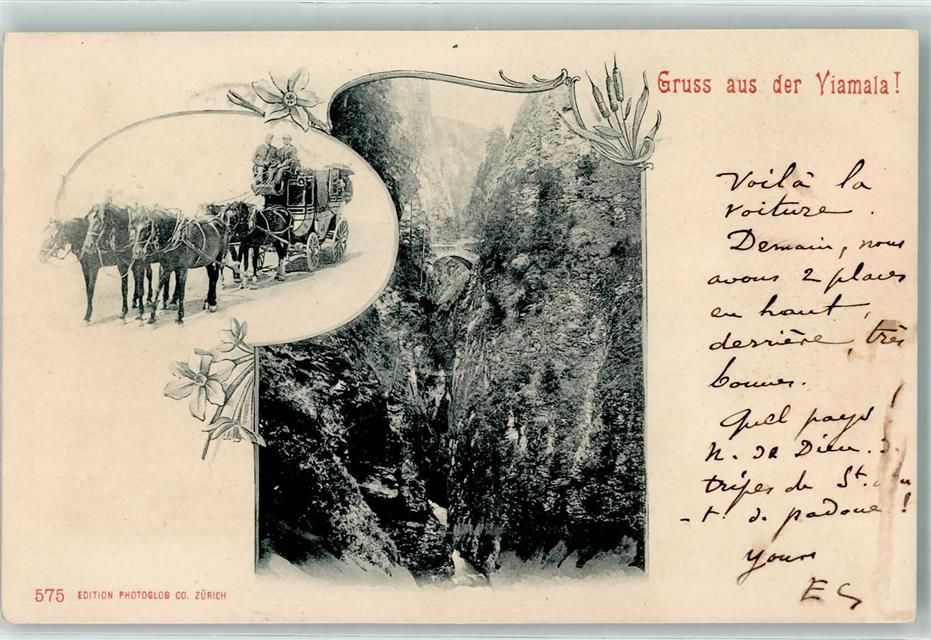 Gruss aus der Viamala!
Voilà la
voiture.
Demain, nous
avons 2 places
en haut,
derrière, très
bonnes.
Quel pays
N. de Dieu. de
tripes de St.
-t. de padoue!
Yours
575 EDITION PHOTOGLOB CO. ZÜRICH